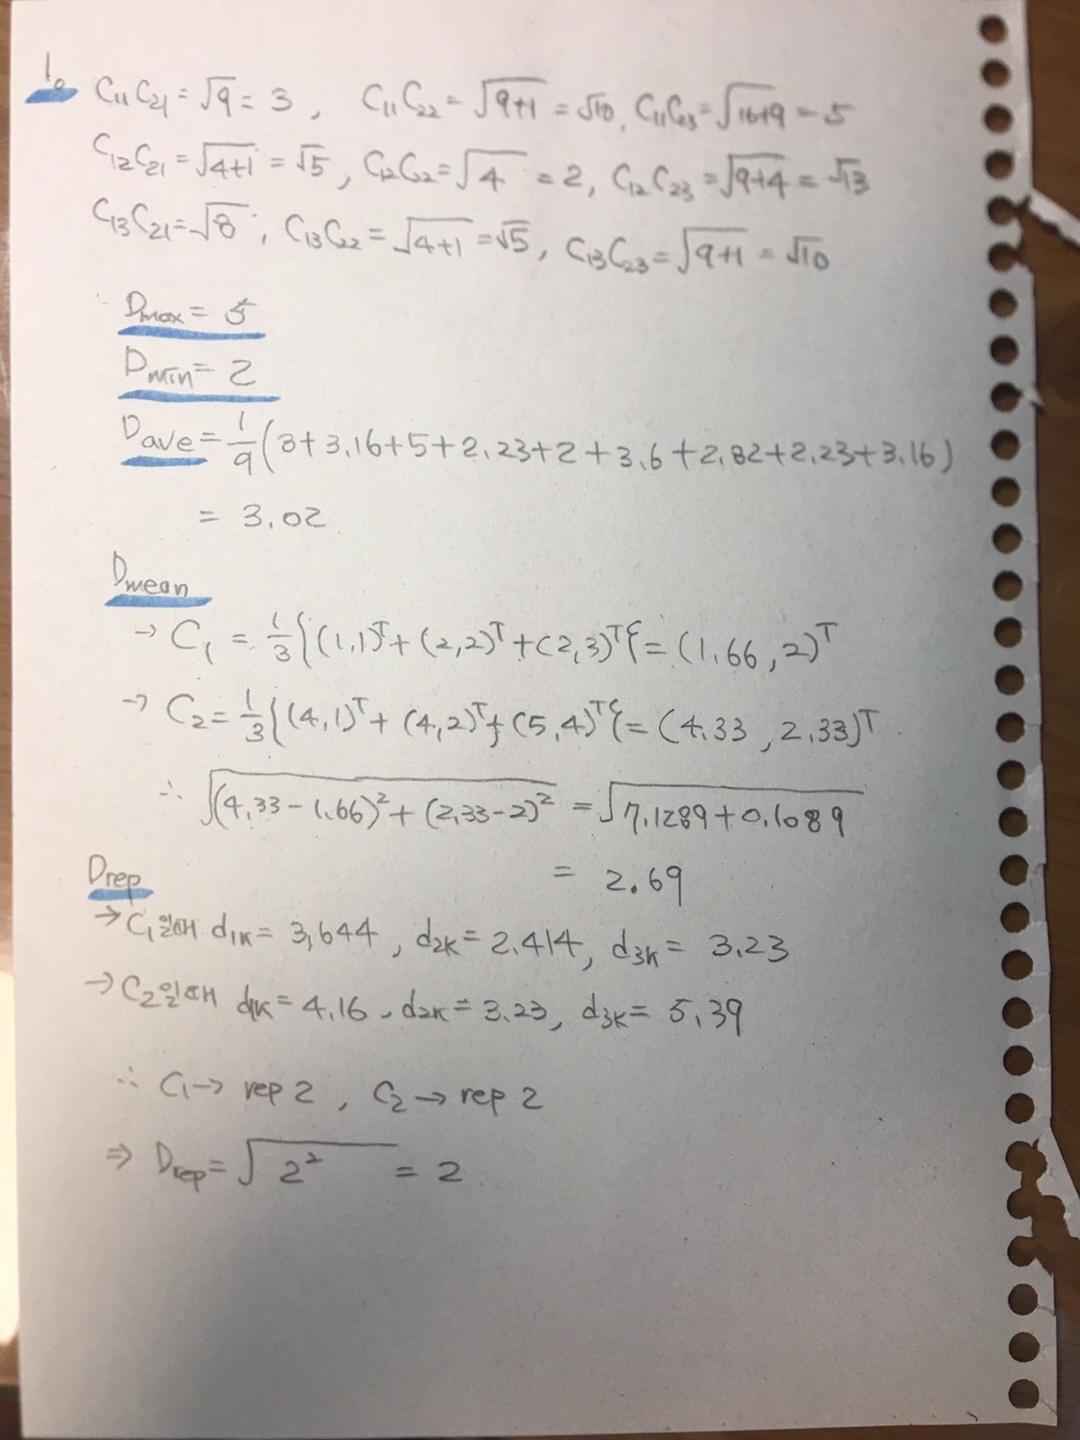 1.
C₁₁C₂₁ = √9 = 3 , C₁₁C₂₂ = √(9+1) = √10, C₁₁C₂₃ = √(16+9) = 5
C₁₂C₂₁ = √(4+1) = √5 , C₁₂C₂₂ = √4 = 2, C₁₂C₂₃ = √(9+4) = √13
C₁₃C₂₁ = √8 , C₁₃C₂₂ = √(4+1) = √5, C₁₃C₂₃ = √(9+1) = √10
∴ Dmax = 5
Dmin = 2
Dave = 1/9 (3+3.16+5+2.23+2+3.6+2.82+2.23+3.16)
= 3.02
Dmean
→ C₁ = 1/3 {(1,1)ᵀ + (2,2)ᵀ + (2,3)ᵀ} = (1.66, 2)ᵀ
→ C₂ = 1/3 {(4,1)ᵀ + (4,2)ᵀ + (5,4)ᵀ} = (4.33, 2.33)ᵀ
∴ √((4.33-1.66)² + (2.33-2)²) = √(7.1289+0.1089)
= 2.69
Drep
→ C₁일때 d₁ₖ = 3.644 , d₂ₖ = 2.414, d₃ₖ = 3.23
→ C₂일때 d₁ₖ = 4.16, d₂ₖ = 3.23, d₃ₖ = 5.39
∴ C₁ → rep 2 , C₂ → rep 2
⇒ Drep = √(2²) = 2